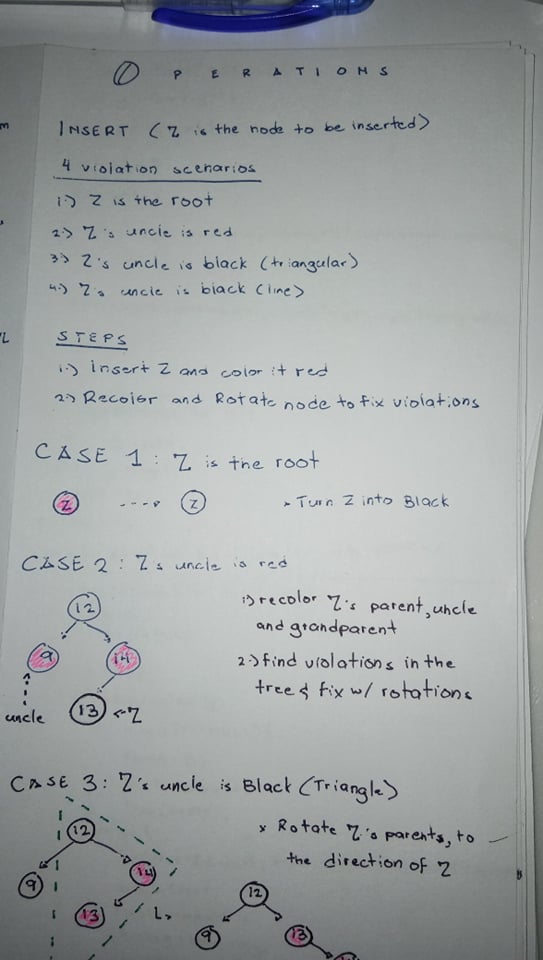 OPERATIONS
INSERT (Z is the node to be inserted)
4 violation scenarios
1.) Z is the root
2.) Z's uncle is red
3.) Z's uncle is black (triangular)
4.) Z's uncle is black (line)
STEPS
1.) insert Z and color it red
2.) Recolor and Rotate node to fix violations
CASE 1: Z is the root
Z ----> Z
* Turn Z into Black
CASE 2: Z's uncle is red
12
9 14
uncle 13 <-Z
1.) recolor Z's parent, uncle
and grandparent
2.) find violations in the
tree & fix w/ rotations
CASE 3: Z's uncle is Black (Triangle)
* Rotate Z's parents, to
the direction of Z
12
9 14
13
12
9 13